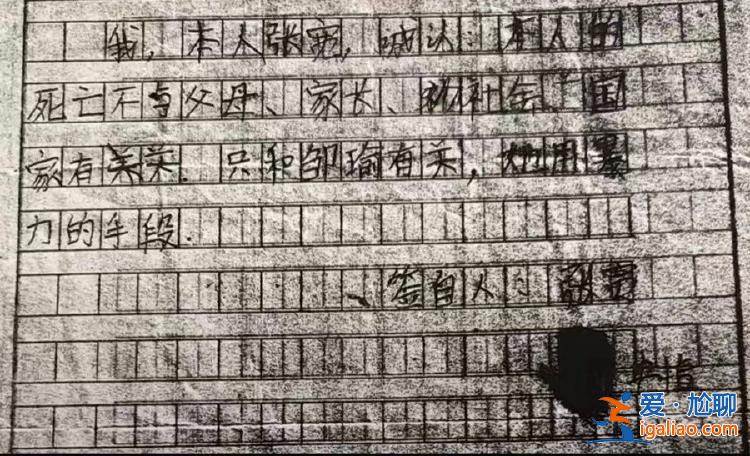 我,本人张宽,诚认:本人的
死亡不与父母、家长、社会、国
家有关关.只和邹瑜有关,她用暴
力的手段.
签自人:张宽
爱·尬聊
igaliao.com